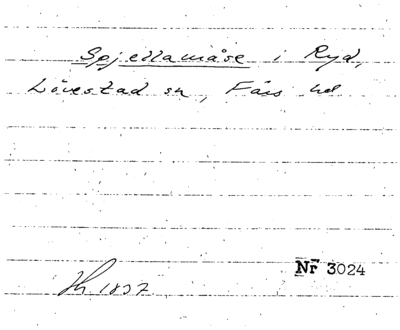 Spjellamåse i Ryd,
Lövestad sn, Färs hd
Nr 3024
1837